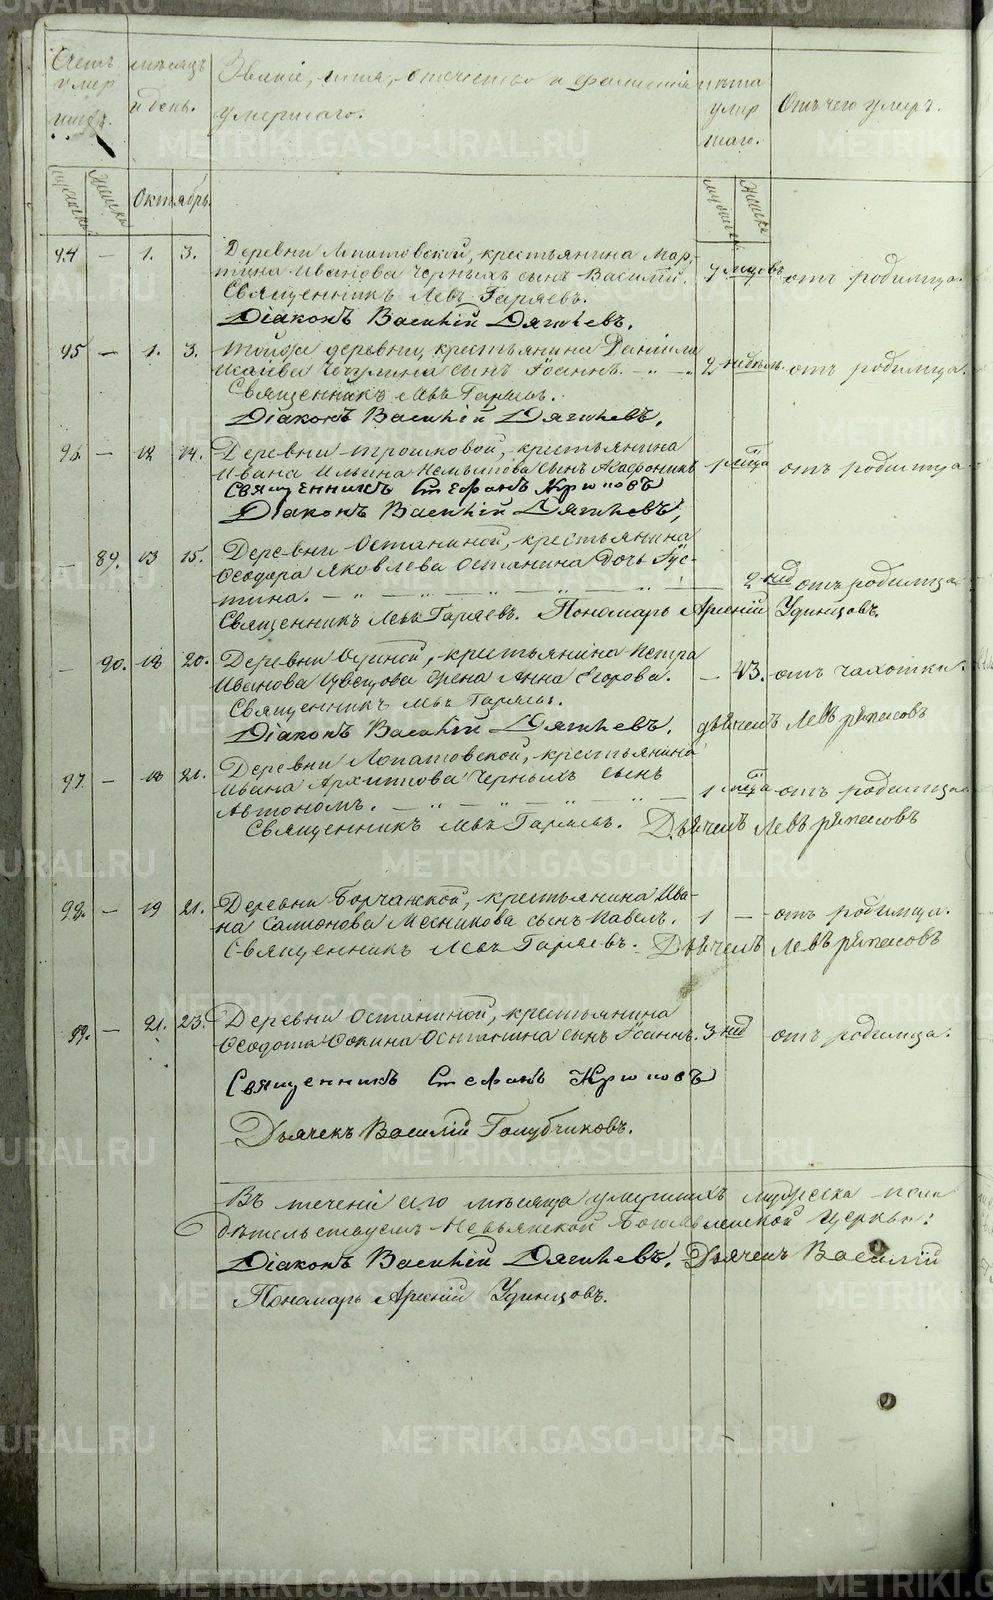 Счетъ умер шихъ.
мѣсяцъ и день.
Званіе, имя, отечество и фамилія умершаго.
лѣта умер шаго.
Отъ чего умеръ.
мужеска женска Октябрь мужеска женска
94 — 1. 3. Деревни Лопатовской, крестьянина Мар-
тина Иванова Черныхъ сынъ Василій. 7 мцовъ отъ родимца.
Священникъ Левъ Гаряевъ.
Діаконъ Василій Дягилевъ.
95 — 1. 3. Тойже деревни, крестьянина Даніила
Исаева сынъ Іоаннъ. — 2 недѣл. отъ родимца.
Священникъ Левъ Гаряевъ.
Діаконъ Василій Дягилевъ.
96. — 12 14. Деревни Трошковой, крестьянина
Ивана Ильина Немытова сынъ 1 мца отъ родимца
Священникъ Стефанъ
Діаконъ Василій Дягилевъ,
— 89. 13 15. Деревни Останиной, крестьянина
Ѳеодора Яковлева Останина дочь Іус-
тина. — 2 нед отъ родимца
Священникъ Левъ Гаряевъ. Пономарь Арсеній Удинцовъ.
— 90. 18 20. Деревни крестьянина Петра
Иванова жена Анна Егорова. — 43. отъ чахотки.
Священникъ Левъ Гаряевъ.
Діаконъ Василій Дягилевъ. дьячекъ Левъ
97 — 18 20. Деревни Лопатовской, крестьянина
Ивана Архипова Черныхъ сынъ
Автономъ. — 1 мца отъ родимца
Священникъ Левъ Гаряевъ. Дьячекъ Левъ
98. — 19 21. Деревни крестьянина Ива-
на Мясникова сынъ Павелъ. 1 — отъ родимца.
Священникъ Левъ Гаряевъ. Дьячекъ Левъ
99. — 21. 23. Деревни Останиной, крестьянина
Ѳеодота Фокина Останина сынъ Іоаннъ. 3 нед отъ родимца.
Священникъ Стефанъ
Дьячекъ Василій Голубчиковъ.
Въ теченіи сего мѣсяца умершихъ мужеска пола
Невьянской Богоявленской церкви:
Діаконъ Василій Дягилевъ. Дьячекъ Василій
Пономарь Арсеній Удинцовъ.
METRIKI.GASO-URAL.RU